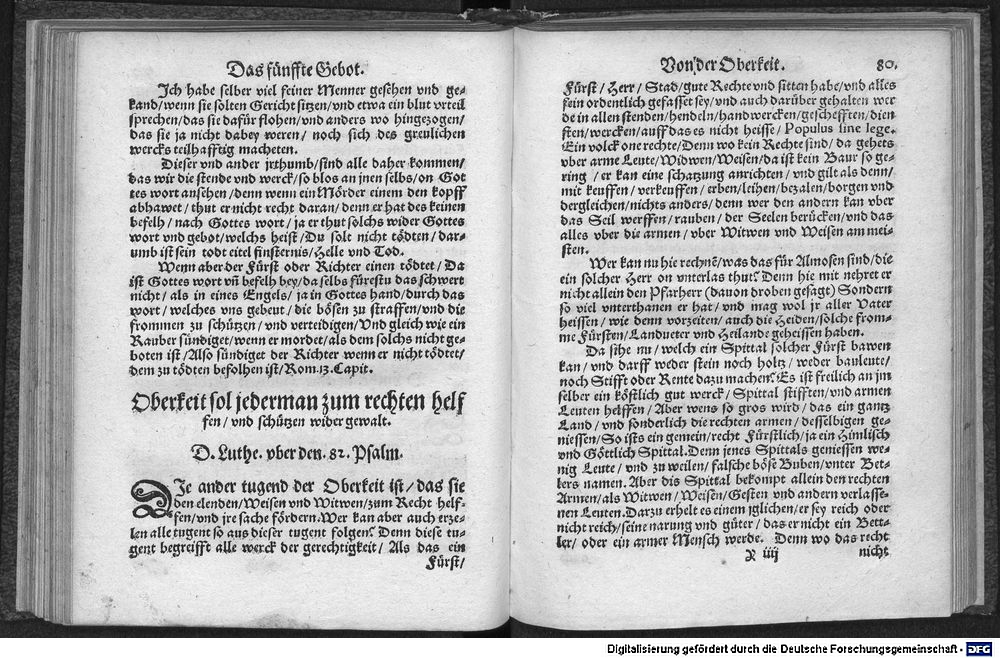 Das fünffte Gebot.
Ich habe selber viel feiner Menner gesehen vnd ge-
kand/wenn sie solten Gericht sitzen/vnd etwa ein blut vrteil
sprechen/das sie dafür flohen/vnd anders wo hingezogen/
das sie ja nicht dabey weren/ noch sich des greulichen
wercks teilhafftig macheten.
Dieser vnd ander jrthumb/sind alle daher kommen/
das wir die stende vnd werck/so blos an jnen selbs/on Got
tes wort ansehen/denn wenn ein Mörder einem den kopff
abhawet/ thut er nicht recht daran/denn er hat des keinen
befelh/ nach Gottes wort/ ja er thut solchs wider Gottes
wort vnd gebot/welchs heist/Du solt nicht tödten/ dar-
umb ist sein todt eitel finsternis/Helle vnd Tod.
Wenn aber der Fürst oder Richter einen tödtet/ Da
ist Gottes wort vñ befelh bey/da selbs fürestu das schwert
nicht/ als in eines Engels/ ja in Gottes hand/durch das
wort/ welches vns gebeut/ die bösen zu straffen/vnd die
frommen zu schützen/ vnd verteidigen/Vnd gleich wie ein
Rauber sündiget/wenn er mordet/als dem solchs nicht ge-
boten ist/Also sündiget der Richter wenn er nicht tödtet/
dem zu tödten befolhen ist/Rom.13.Capit.
Oberkeit sol jederman zum rechten helf
fen/ vnd schützen wider gewalt.
D. Luthe. vber den. 82. Psalm.
DJe ander tugend der Oberkeit ist/ das sie
den elenden/Weisen vnd Witwen/zum Recht helf-
fen/vnd jre sache fördern. Wer kan aber auch erze-
len alle tugent so aus dieser tugent folgen? Denn diese tu-
gent begreifft alle werck der gerechtigkeit/ Als das ein
Fürst/
Von der Oberkeit. 80.
Fürst/ Herr/ Stad/gute Rechte vnd sitten habe/vnd alles
fein ordentlich gefasset sey/vnd auch darüber gehalten wer
de in allen stenden/hendeln/handwercken/geschefften/dien
sten/wercken/auff das es nicht heisse/ Populus sine lege.
Ein volck one rechte/Denn wo kein Rechte sind/ da gehets
vber arme Leute/Widwen/Weisen/da ist kein Baur so ge-
ring/ er kan eine schatzung anrichten/ vnd gilt als denn/
mit keuffen/ verkeuffen/ erben/leihen/bezalen/borgen vnd
dergleichen/nichts anders/denn wer den andern kan vber
das Seil werffen/ rauben/ der Seelen berücken/vnd das
alles vber die armen/ vber Witwen vnd Weisen am mei-
sten.
Wer kan nu hie rechnẽ/was das für Almosen sind/die
ein solcher Herr on vnterlas thut? Denn hie mit nehret er
nicht allein den Pfarherr (dauon droben gesagt) Sondern
so viel vnterthanen er hat/ vnd mag wol jr aller Vater
heissen/ wie denn vorzeiten/ auch die Heiden/solche from-
me Fürsten/Landueter vnd Heilande geheissen haben.
Da sihe nu/ welch ein Spittal solcher Fürst bawen
kan/ vnd darff weder stein noch holtz/ weder bauleute/
noch Stifft oder Rente dazu machen? Es ist freilich an jm
selber ein köstlich gut werck/ Spittal stifften/vnd armen
Leuten helffen/ Aber wens so gros wird/ das ein gantz
Land/ vnd sonderlich die rechten armen/ desselbigen ge-
niessen/So ists ein gemein/recht Fürstlich/ja ein Himlisch
vnd Göttlich Spittal. Denn jenes Spittals geniessen we-
nig Leute/ vnd zu weilen/ falsche böse Buben/vnter Bet-
lers namen. Aber dis Spittal bekompt allein den rechten
Armen/als Witwen/ Weisen/Gesten vnd andern verlasse-
nen Leuten. Darzu erhelt es einem jglichen/er sey reich oder
nicht reich/seine narung vnd güter/ das er nicht ein Bett-
ler/ oder ein armer Mensch werde. Denn wo das recht
R iiij nicht
Digitalisierung gefördert durch die Deutsche Forschungsgemeinschaft - DFG